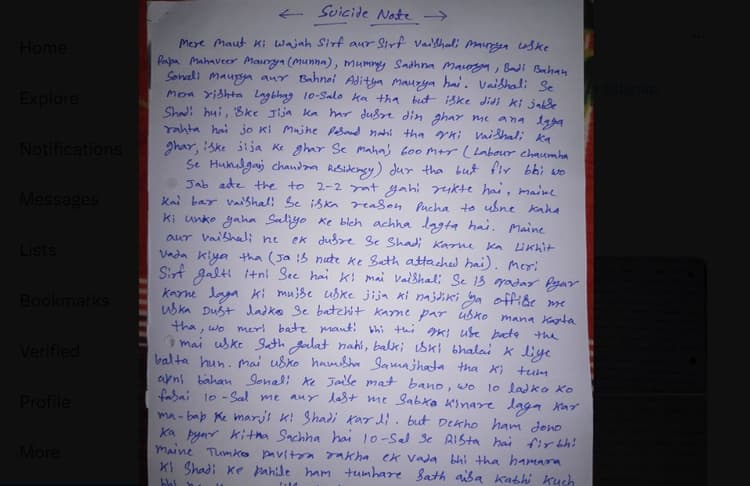 Home
Explore
Notifications
Messages
Lists
Bookmarks
Verified
Profile
More
← Suicide Note →
Mere Maut Ki Wajah Sirf aur Sirf Vaishali Maurya uske
Papa Mahaveer Maurya (Munna), Mummy Sadhna Maurya, Badi Bahan
Sonali Maurya aur Bahnoi Aditya Maurya hai. Vaishali Se
Mera rishta Lagbhag 10-Salo ka tha but iske didi ki jabse
Shadi hui, iske Jija ka har dusre din ghar me ana laga
rahta hai jo ki Mujhe Pasand nahi tha qki Vaishali ka
ghar, iske jija ke ghar se mahaj 600 Mtr (Labour chauraha
Se Hukulganj chandra Residency) dur tha but fir bhi wo
Jab ate the to 2-2 rat yahi rukte hai, maine
kai bar vaishali se iska reason Pucha to usne kaha
ki unko yaha Saliyo ke bich achha lagta hai. Maine
aur vaishali ne ek dusre se Shadi karne ka Likhit
vada kiya tha (Jo is note ke Sath attached hai). Meri
Sirf galti itni See hai ki mai vaishali se is qadar Pyar
karne laga ki mujhe uske jija ki najdiki ya office me
uska Dust ladko se batchit karne par usko mana karta
tha, wo meri bate manti bhi thi qki use pata tha
mai uske Sath galat nahi, balki iski bhalai k liye
balta hun. Mai usko hamesha Samajhata tha ki tum
apni bahan Sonali ke Jaise mat bano, wo 10 ladko ko
fasai 10-Sal me aur last me Sabko kinare laga kar
ma-bap ke marji ki Shadi kar li. but Dekho ham dono
ka pyar kitna Sachha hai 10-Sal se Rista hai fir bhi
maine Tumko pavitra rakha ek vada bhi tha hamara
ki Shadi ke pahile ham tumhare Sath aisa kabhi kuch